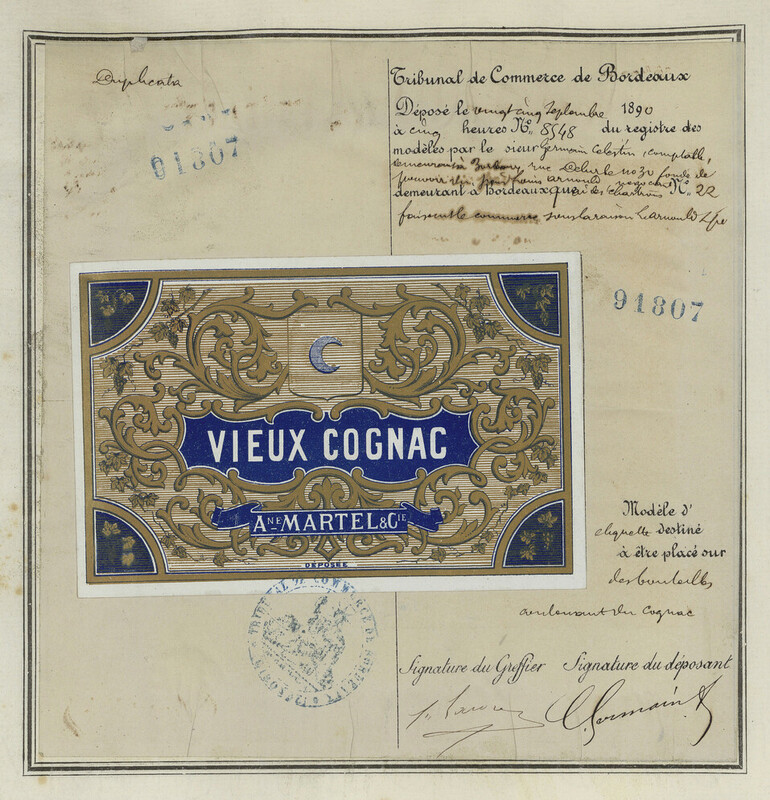 Duplicata
91807
Tribunal de Commerce de Bordeaux
Déposé le vingt cinq Septembre 1890
à cinq heures N° 8548 du registre des
modèles par le sieur Germain Célestin, comptable,
demeurant à Bordeaux, rue no 30 fondé de
pouvoir Arnould négociant
demeurant à Bordeaux quai des Chartrons N° 22
faisant le commerce sous la raison L. Arnould & fre
91807
VIEUX COGNAC
ANE MARTEL & CIE
DÉPOSÉE
Modèle d'
étiquette destiné
à être placé sur
des bouteilles
contenant du Cognac
TRIBUNAL DE COMMERCE DE BORDEAUX
Signature du Greffier Signature du déposant
C. Germain